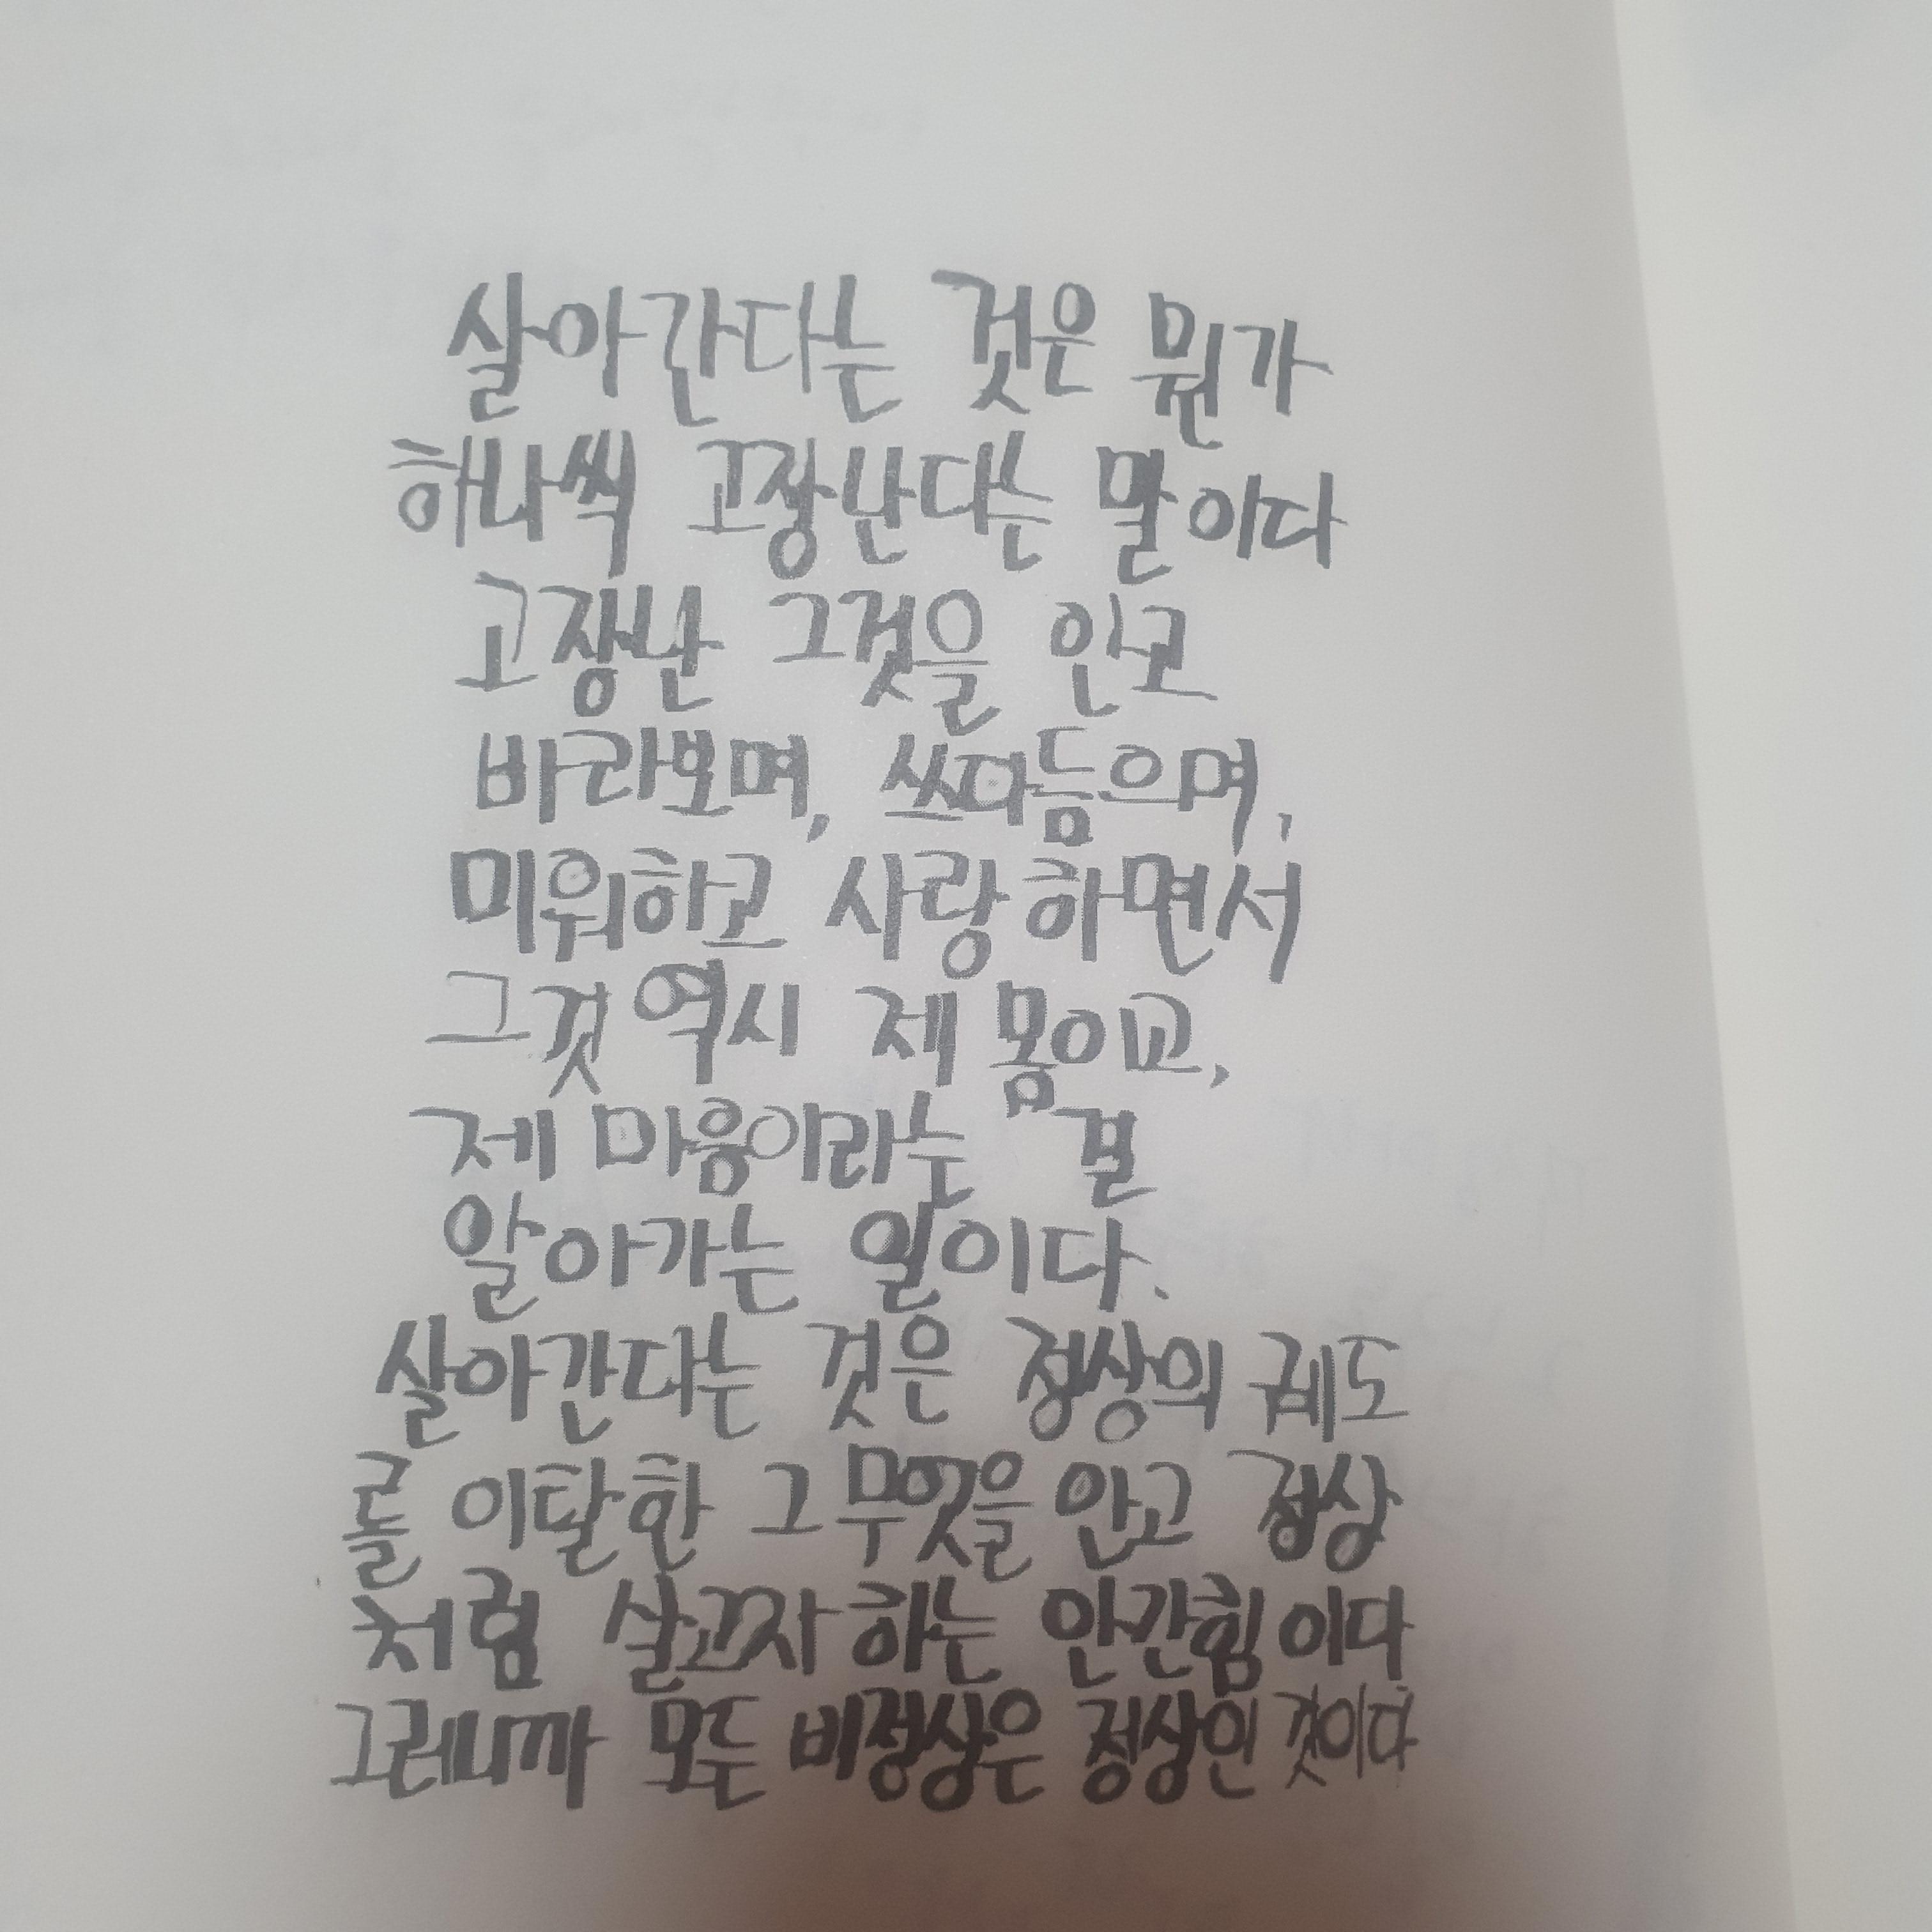 살아간다는 것은 뭔가
하나씩 고장난다는 말이다
고장난 그것을 안고
바라보며, 쓰다듬으며,
미워하고 사랑하면서
그것 역시 제 몸이고,
제 마음이라는 걸
알아가는 일이다.
살아간다는 것은 정상의 궤도
를 이탈한 그 무엇을 안고 정상
처럼 살고자 하는 안간힘이다
그러니까 모든 비정상은 정상인 것이다